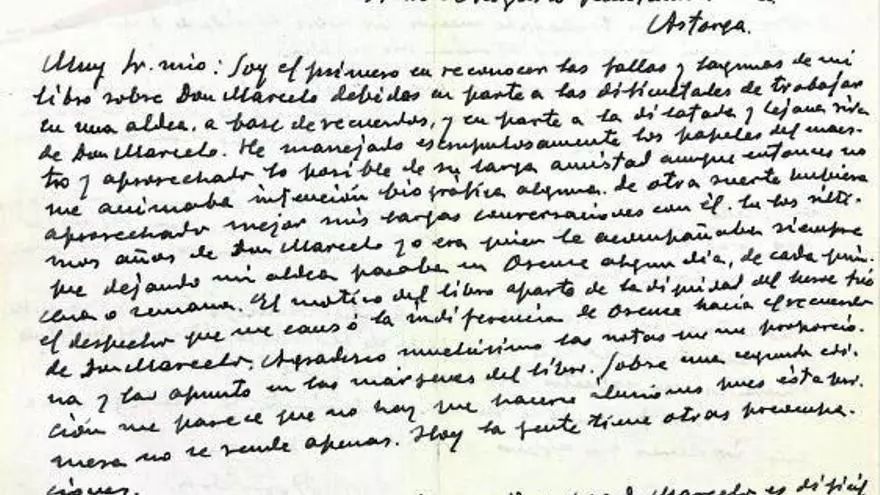 Astorga.
Muy Sr. mio: Soy el primero en reconocer las fallas y lagunas de mi
libro sobre Don Marcelo debidas en parte a las dificultades de trabajar
en una aldea, a base de recuerdos, y en parte a la dilatada y lejana vida
de Don Marcelo. He manejado escrupulosamente los papeles del maes-
tro y aprovechado lo posible de su larga amistad aunque entonces no
me animaba intención biográfica alguna. De otra suerte hubiera
aprovechado mejor mis largas conversaciones con él. En los últi-
mos años de Don Marcelo yo era quien le acompañaba siempre
que dejando mi aldea pasaba en Orense algun dia, de cada quin-
cena o semana. El motivo del libro aparte de la dignidad del heroe fué
el despecho que me causó la indiferencia de Orense hacia el recuerdo
de Don Marcelo. Agradezco muchísimo las notas que me proporcio-
na y las apunto en las márgenes del libro. Sobre una segunda edi-
ción me parece que no hay que hacerse ilusiones pues ésta pri-
mera no se vende apenas. Hoy la gente tiene otras preocupa-
ciones.
Marcelo es dificil